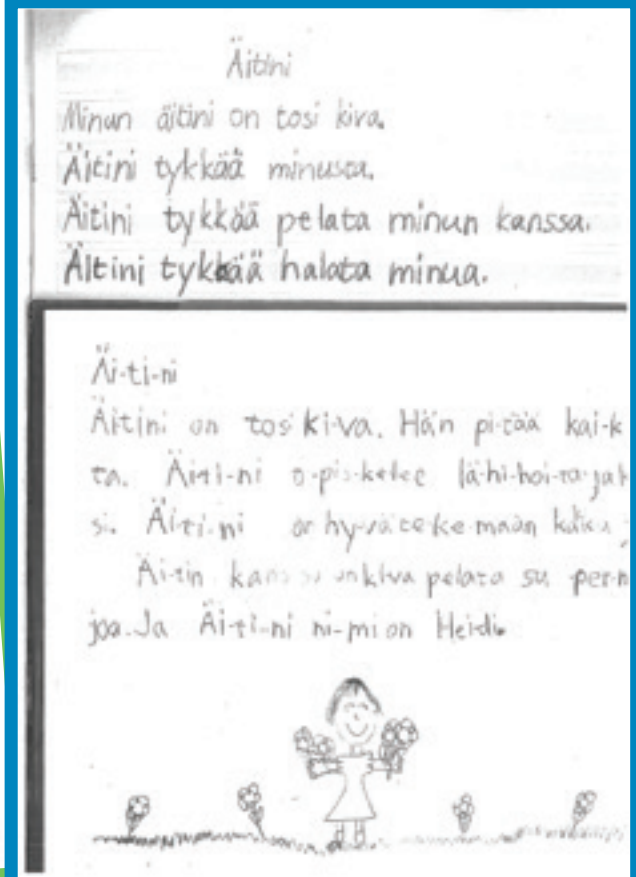 Äitini
Minun äitini on tosi kiva.
Äitini tykkää minusta.
Äitini tykkää pelata minun kanssa.
Äitini tykkää halata minua.
Äi-ti-ni
Äitini on tosi ki-va. Hän pi-tää kai-k
ta. Äi-ti-ni o-pis-kelee lä-hi-hoi-ta-jak
si. Äi-ti-ni on hy-vä te-ke-mään
Äi-tin kanssa on kiva pelata su per-m
joa. Ja Äi-ti-ni ni-mi on Heidi.